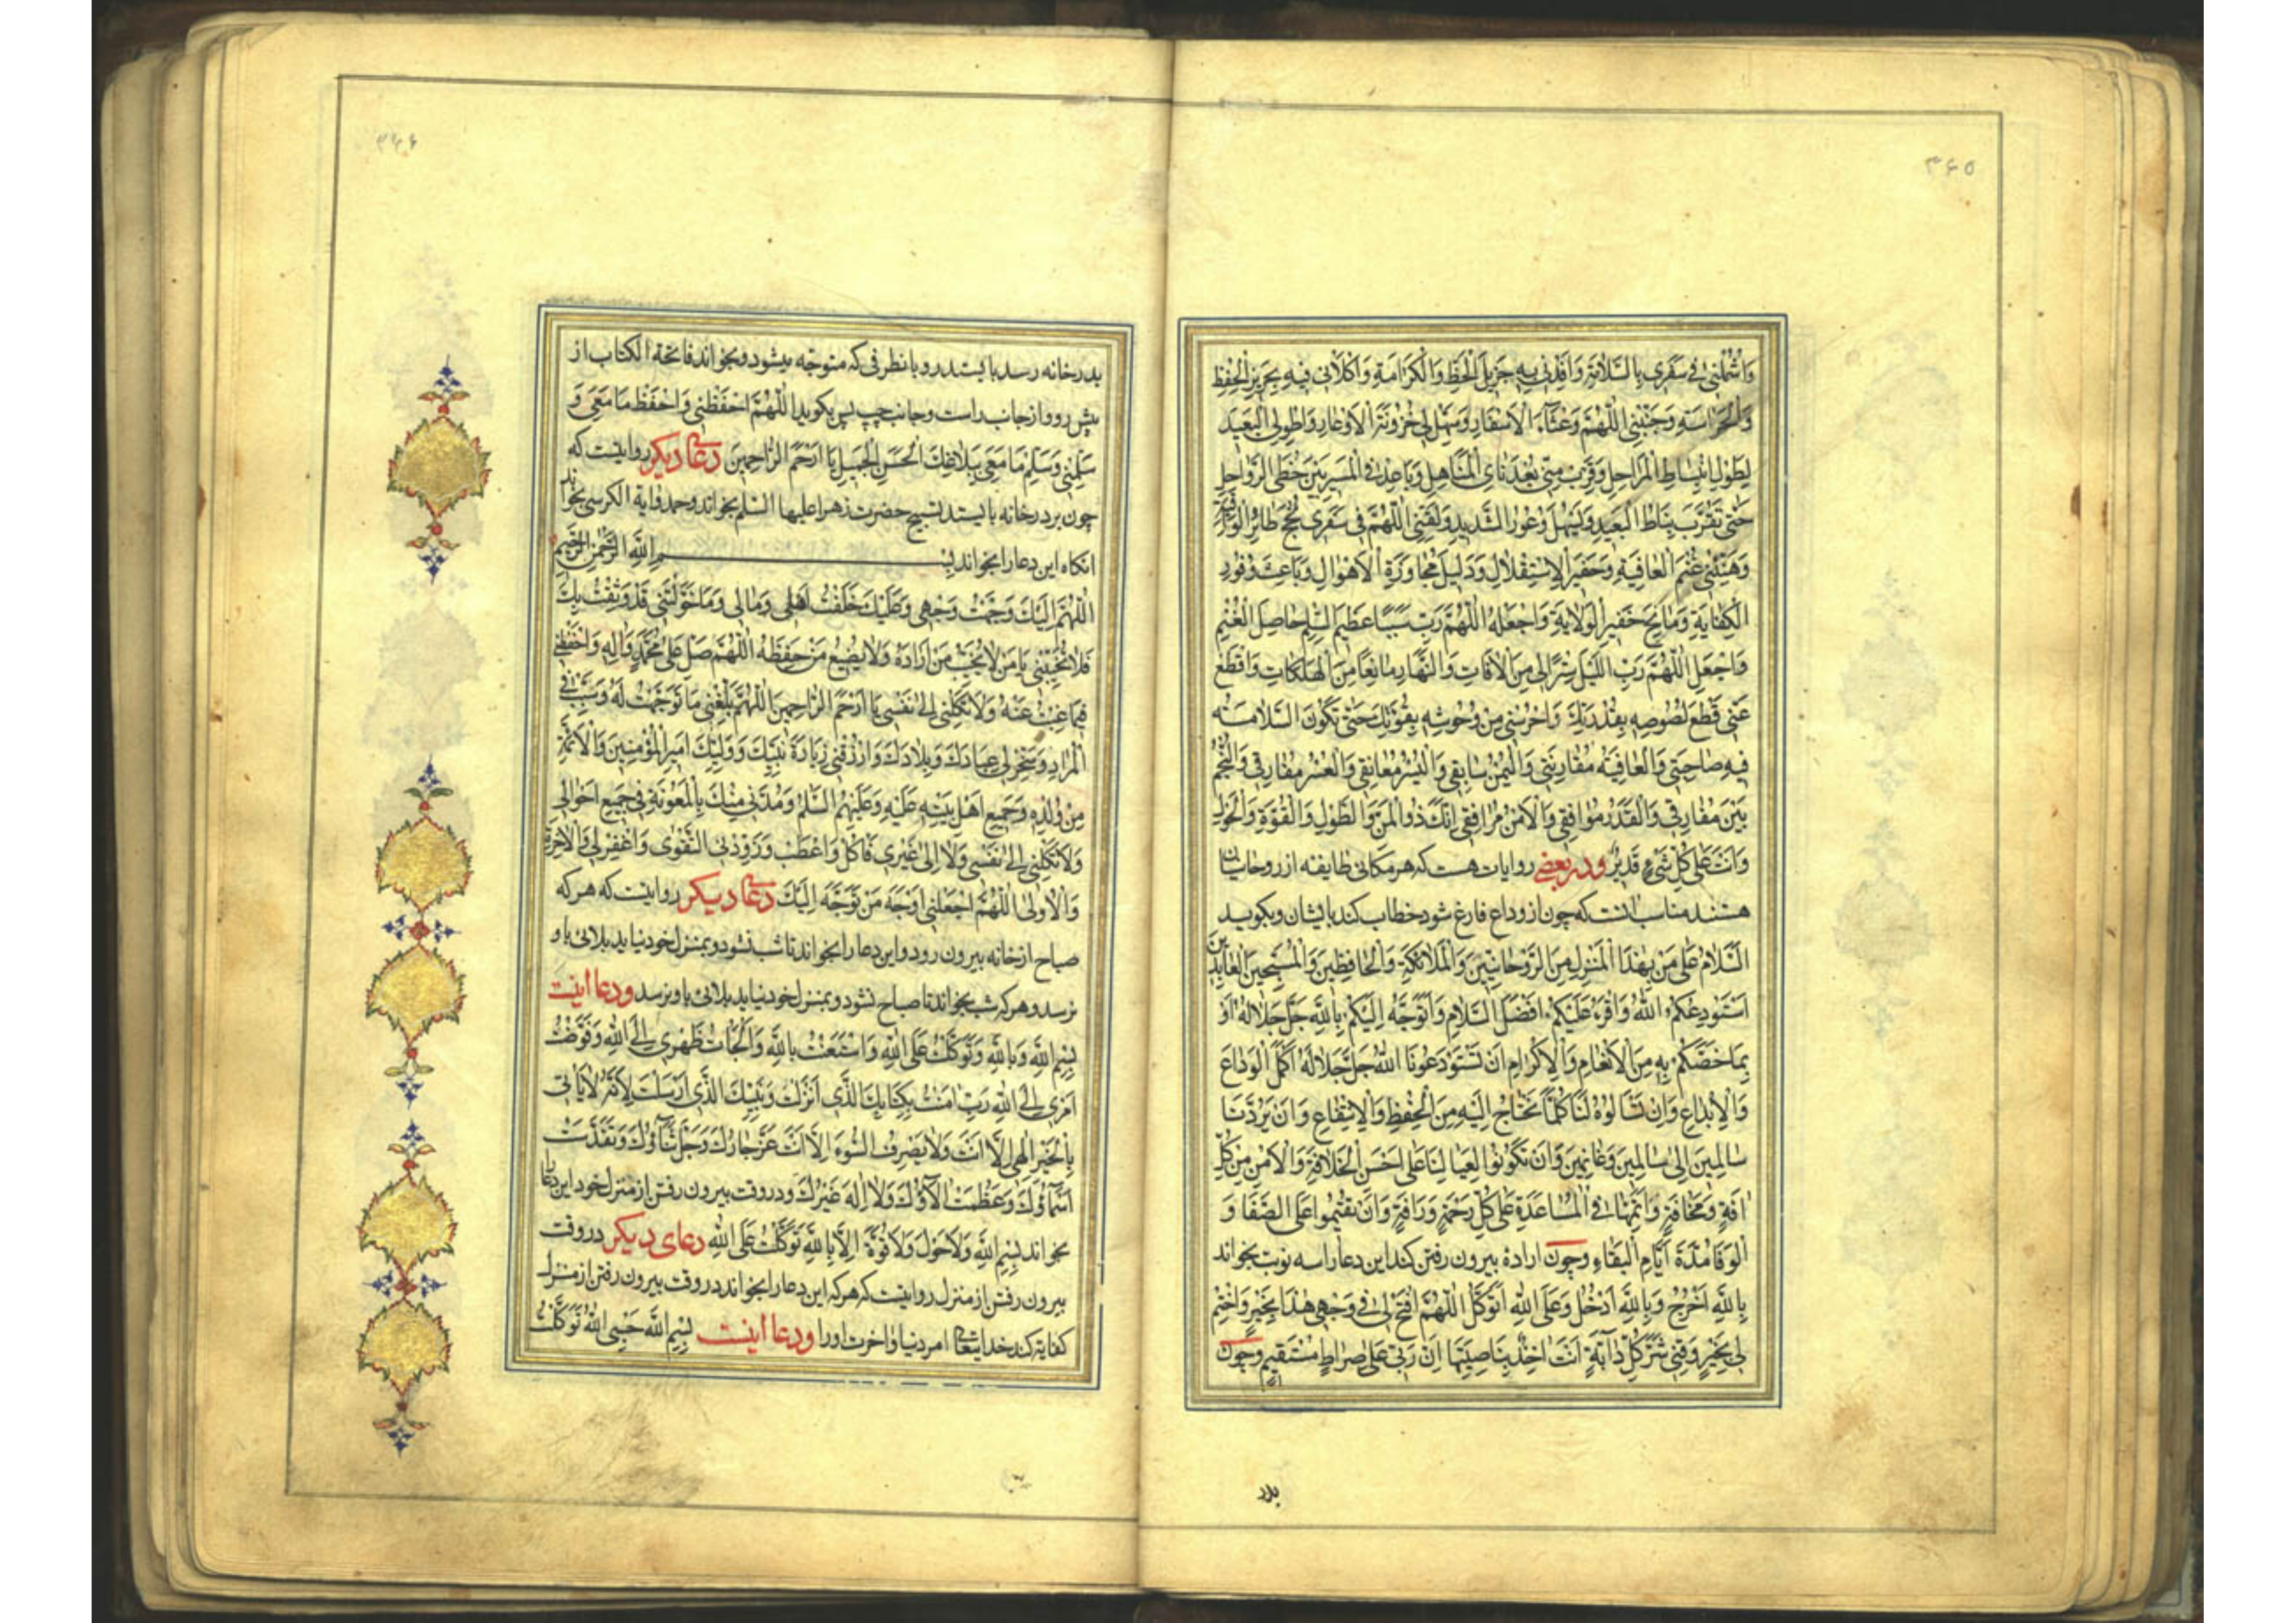 ۳۶۵
وَاشْمُلْنِي فِي سَفَرِي بِالسَّلَامَةِ وَأَفِدْنِي بِهِ جَزِيلَ الْحَظِّ وَالْكَرَامَةِ وَاكْلَأْنِي فِيهِ بِحَرِيزِ الْحِفْظِ
وَالْحَرَاسَةِ وَجَنِّبْنِي اللّٰهُمَّ وَعْثَاءَ الْأَسْفَارِ وَسَهِّلْ لِي حُزُونَةَ الْأَوْعَارِ وَاطْوِ لِي الْبَعِيدَ
لِطُولِ انْبِسَاطِ الْمَرَاحِلِ وَقَرِّبْ مِنِّي بُعْدَ نَأْيِ الْمَنَاهِلِ وَبَاعِدْ فِي الْمَسِيرِ بَيْنَ خُطَى الرَّوَاحِلِ
حَتَّى تُقَرِّبَ نِيَاطَ الْبَعِيدِ وَتُسَهِّلَ وُعُورَ الشَّدِيدِ وَلَقِّنِي اللّٰهُمَّ فِي سَفَرِي نُجْحَ طَائِرِ الْوَاقِيَةِ
وَهَنِّئْنِي غُنْمَ الْعَافِيَةِ وَخَفِيرَ الْاِسْتِقْلَالِ وَدَلِيلَ مُجَاوَزَةِ الْأَهْوَالِ وَبَاعِثَ وُفُورِ
الْكِفَايَةِ وَسَانِحَ خَفِيرِ الْوِلَايَةِ وَاجْعَلْهُ اللّٰهُمَّ رَبِّ سَبَبًا عَظِيمَ السِّلْمِ حَاصِلَ الْغُنْمِ
وَاجْعَلِ اللّٰهُمَّ رَبِّ اللَّيْلَ سِتْرًا لِي مِنَ الْآفَاتِ وَالنَّهَارَ مَانِعًا مِنَ الْهَلَكَاتِ وَاقْطَعْ
عَنِّي قَطْعَ لُصُوصِهِ بِقُدْرَتِكَ وَاحْرُسْنِي مِنْ وُحُوشِهِ بِقُوَّتِكَ حَتَّى تَكُونَ السَّلَامَةُ
فِيهِ صَاحِبَتِي وَالْعَافِيَةُ مُقَارِنَتِي وَالْيُمْنُ سَابِقِي وَالْيُسْرُ مُعَانِقِي وَالْعُسْرُ مُفَارِقِي وَالنُّجْحُ
بَيْنَ مَفَارِقِي وَالْقَدَرُ مُوَافِقِي وَالْأَمْنُ مُرَافِقِي إِنَّكَ ذُو الْمَنِّ وَالطَّوْلِ وَالْقُوَّةِ وَالْحَوْلِ
وَأَنْتَ عَلَى كُلِّ شَيْءٍ قَدِيرٌ ودر بعضى روايات هست كه هر مكانى طايفه از روحانيان
هستند مناسب انست كه چون از وداع فارغ شود خطاب كند بايشان و بكويد
السَّلَامُ عَلَى مَنْ بِهٰذَا الْمَنْزِلِ مِنَ الرَّوْحَانِيِّينَ وَالْمَلَائِكَةِ وَالْحَافِظِينَ وَالْمُسَبِّحِينَ الْعَابِدِينَ
أَسْتَوْدِعُكُمُ اللّٰهَ وَأَقْرَءُ عَلَيْكُمْ أَفْضَلَ السَّلَامِ وَأَتَوَجَّهُ إِلَيْكُمْ بِاللّٰهِ جَلَّ جَلَالُهُ أَوْ
بِمَا خَصَّكُمْ بِهِ مِنَ الْأَنْعَامِ وَالْإِكْرَامِ أَنْ تَسْتَوْدِعُونَا اللّٰهَ جَلَّ جَلَالُهُ أَكْمَلَ الْوَدَاعِ
وَالْإِيدَاعِ وَأَنْ تَسْأَلُوهُ لَنَا كُلَّمَا نَحْتَاجُ إِلَيْهِ مِنَ الْحِفْظِ وَالْاِنْتِفَاعِ وَأَنْ يَرُدَّنَا
سَالِمِينَ إِلَى سَالِمِينَ وَغَانِمِينَ وَأَنْ تَكُونُوا لِعِيَالِنَا عَلَى أَحْسَنِ الْخِلَافَةِ وَالْأَمْنِ مِنْ كُلِّ
آفَةٍ وَمَخَافَةٍ فِي الْمُسَاعَدَةِ عَلَى كُلِّ رَحْمَةٍ وَرَأْفَةٍ وَأَنْ تُقِيمُوا عَلَى الصَّفَا وَ
الْوَفَا مُدَّةَ أَيَّامِ الْبَقَاءِ وچون اراده بيرون رفتن كند اين دعا را سه نوبت بخواند
بِاللّٰهِ أَخْرُجُ وَبِاللّٰهِ أَدْخُلُ وَعَلَى اللّٰهِ أَتَوَكَّلُ اللّٰهُمَّ افْتَحْ لِي فِي وَجْهِي هٰذَا بِخَيْرٍ وَاخْتِمْ
لِي بِخَيْرٍ وَقِنِي شَرَّ كُلِّ دَابَّةٍ أَنْتَ آخِذٌ بِنَاصِيَتِهَا إِنَّ رَبِّي عَلَى صِرَاطٍ مُسْتَقِيمٍ وچون
بدر
۳۶۶
بدر خانه رسد بايستد رو بانطرفى كه متوجه ميشود و بخواند فاتحة الكتاب از
پيش رو و از جانب راست و جانب چپ پس بكويد اللّٰهُمَّ احْفَظْنِي وَاحْفَظْ مَا مَعِيَ وَ
سَلِّمْنِي وَسَلِّمْ مَا مَعِيَ بِبَلَاغِكَ الْحَسَنِ الْجَمِيلِ يَا أَرْحَمَ الرَّاحِمِينَ دعاى ديكر روايتست كه
چون بر در خانه بايستد تسبيح حضرت زهرا عليها السلم بخواند وحمد واية الكرسى بخواند
انكاه اين دعا را بخواند بِسْمِ اللّٰهِ الرَّحْمٰنِ الرَّحِيمِ
اللّٰهُمَّ إِلَيْكَ وَجَّهْتُ وَجْهِي وَعَلَيْكَ خَلَّفْتُ أَهْلِي وَمَالِي وَمَا خَوَّلْتَنِي قَدْ وَثِقْتُ بِكَ
فَلَا تُخَيِّبْنِي يَا مَنْ لَا يُخَيِّبُ مَنْ أَرَادَهُ وَلَا يُضِيعُ مَنْ حَفِظَهُ اللّٰهُمَّ صَلِّ عَلَى مُحَمَّدٍ وَآلِهِ وَاحْفَظْنِي
فِيمَا غِبْتُ عَنْهُ وَلَا تَكِلْنِي إِلَى نَفْسِي يَا أَرْحَمَ الرَّاحِمِينَ اللّٰهُمَّ بَلِّغْنِي مَا تَوَجَّهْتُ لَهُ وَسَبِّبْ لِي
الْمُرَادَ وَسَخِّرْ لِي عِبَادَكَ وَبِلَادَكَ وَارْزُقْنِي زِيَارَةَ نَبِيِّكَ وَوَلِيِّكَ أَمِيرِ الْمُؤْمِنِينَ وَالْأَئِمَّةِ
مِنْ وُلْدِهِ وَجَمِيعِ أَهْلِ بَيْتِهِ عَلَيْهِ وَعَلَيْهِمُ السَّلَمُ وَمُدَّنِي مِنْكَ بِالْمَعُونَةِ فِي جَمِيعِ أَحْوَالِي
وَلَا تَكِلْنِي إِلَى نَفْسِي وَلَا إِلَى غَيْرِي فَأَكِلَّ وَأَعْطَبَ وَزَوِّدْنِي التَّقْوَى وَاغْفِرْ لِي فِي الْآخِرَةِ
وَالْأُولَى اللّٰهُمَّ اجْعَلْنِي أَوْجَهَ مَنْ تَوَجَّهَ إِلَيْكَ دعاى ديكر روايتست كه هر كه
صباح از خانه بيرون رود و اين دعا را بخواند تا شب نشود و بمنزل خود نيايد بلائى باو
نرسد و هر كه شب بخواند تا صباح نشود و بمنزل خود نيايد بلائى باو نرسد ودعا اينست
بِسْمِ اللّٰهِ وَبِاللّٰهِ وَتَوَكَّلْتُ عَلَى اللّٰهِ وَاسْتَعَنْتُ بِاللّٰهِ وَأَلْجَأْتُ ظَهْرِي إِلَى اللّٰهِ وَفَوَّضْتُ
أَمْرِي إِلَى اللّٰهِ رَبِّ آمَنْتُ بِكِتَابِكَ الَّذِي أَنْزَلْتَ وَنَبِيِّكَ الَّذِي أَرْسَلْتَ لِأَنَّهُ لَا يَأْتِي
بِالْخَيْرِ إِلٰهِي إِلَّا أَنْتَ وَلَا يَصْرِفُ السُّوءَ إِلَّا أَنْتَ عَزَّ جَارُكَ وَجَلَّ ثَنَاؤُكَ وَتَقَدَّسَتْ
أَسْمَاؤُكَ وَعَظُمَتْ آلَاؤُكَ وَلَا إِلٰهَ غَيْرُكَ ودر وقت بيرون رفتن از منزل خود اين دعا
بخواند بِسْمِ اللّٰهِ وَلَا حَوْلَ وَلَا قُوَّةَ إِلَّا بِاللّٰهِ تَوَكَّلْتُ عَلَى اللّٰهِ دعاى ديكر در وقت
بيرون رفتن از منزل روايتست كه هر كه اين دعا را بخواند در وقت بيرون رفتن از منزل
كفايه كند خدايتعالى امر دنيا واخرت او را ودعا اينست بِسْمِ اللّٰهِ حَسْبِيَ اللّٰهُ تَوَكَّلْتُ